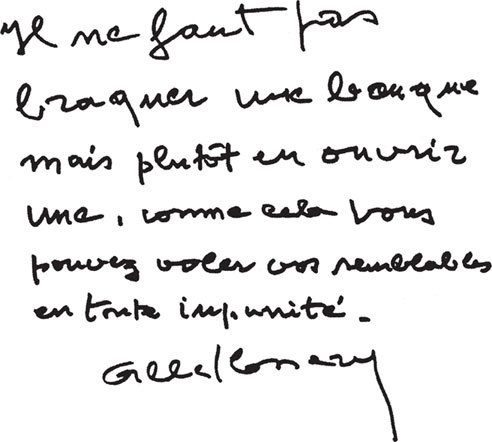 Il ne faut pas
braquer une banque
mais plutôt en ouvrir
une, comme cela vous
pouvez voler vos semblables
en toute impunité.